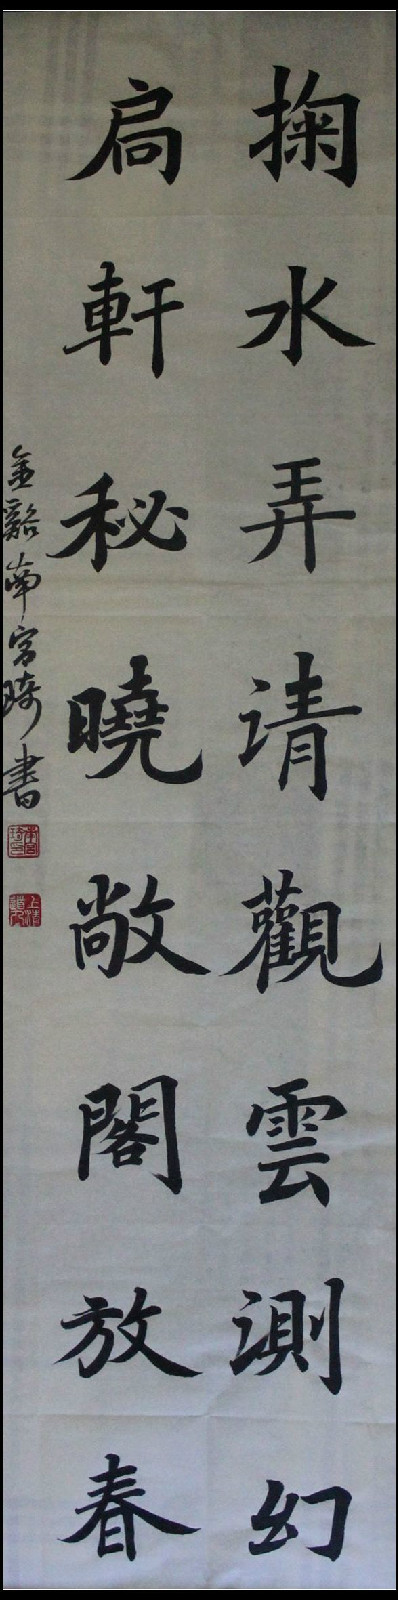 掬水弄清觀雲測幻
扃軒秘曉敞閣放春
金谿南宮琦書